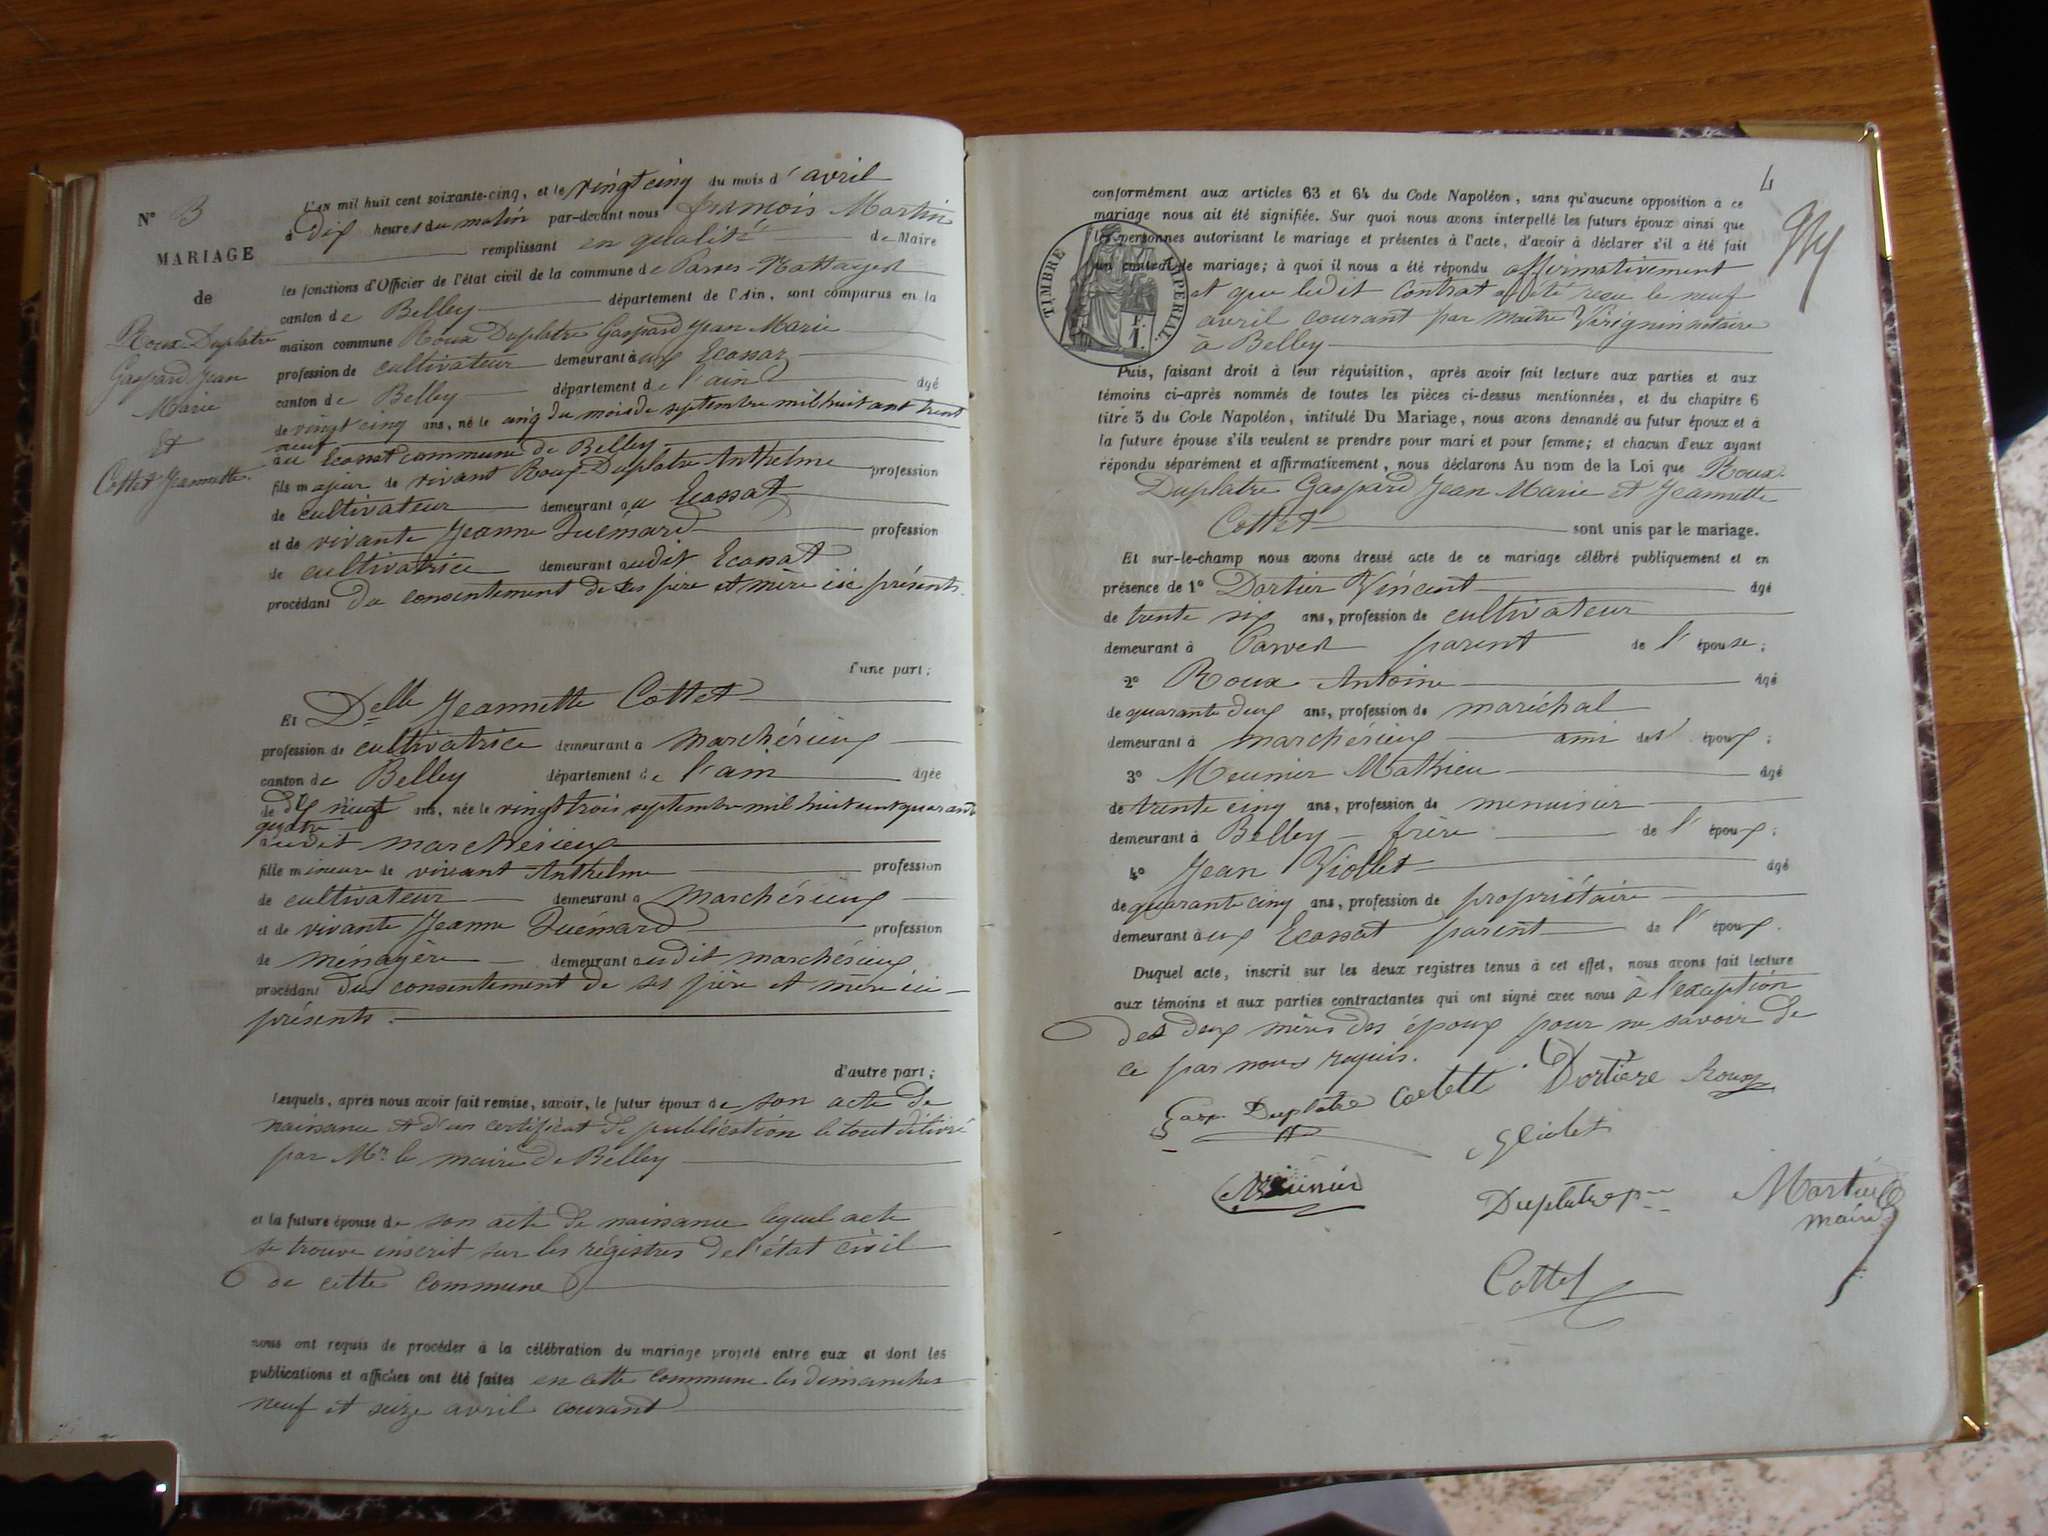 N° 3
MARIAGE
de
Roux-Duplatre
Gaspard Jean
Marie
Et
Cottet Jeannette
L'AN mil huit cent soixante-cinq, et le vingt cinq du mois d'avril
à Dix heures du matin par-devant nous françois Martin
remplissant en qualité de Maire
les fonctions d'Officier de l'état civil de la commune de Parves-Nattages
canton de Belley département de l'Ain, sont comparus en la
maison commune Roux Duplatre Gaspard Jean Marie
profession de cultivateur demeurant aux Ecossaz
canton de Belley département de l'ain âgé
de vingt cinq ans, né le cinq du mois de septembre mil huit cent trent
neuf
au Ecossat commune de Belley
fils majeur de vivant Roux-Duplatre Anthelme profession
de cultivateur demeurant au Ecossat
et de vivante Jeanne Quémard profession
de cultivatrice demeurant audit Ecossat
procédant du consentement de ses père et mère ici présents.
d'une part;
Et Delle Jeannette Cottet
profession de cultivatrice demeurant à marchérieux
canton de Belley département de l'ain âgée
de dix neuf ans, née le vingt trois septembre mil huit cent quarante
quatre
audit marchérieux
fille mineure de vivant Anthelme profession
de cultivateur demeurant a marchérieux
et de vivante Jeanne Quémard profession
de ménagère demeurant audit marchérieux
procédant du consentement de ses père et mère ici
présents.
d'autre part;
Lesquels, après nous avoir fait remise, savoir, le futur époux de son acte de
naissance et d'un certificat de publication le tout délivré
par Mr. le maire de Belley
et la future épouse de son acte de naissance lequel acte
se trouve inscrit sur les régistres de l'état civil
de cette commune
nous ont requis de procéder à la célébration du mariage projeté entre eux et dont les
publications et affiches ont été faites en cette commune les dimanches
neuf et seize avril courant
4
conformément aux articles 63 et 64 du Code Napoléon, sans qu'aucune opposition à ce
mariage nous ait été signifiée. Sur quoi nous avons interpellé les futurs époux ainsi que
les personnes autorisant le mariage et présentes à l'acte, d'avoir à déclarer s'il a été fait
un contrat de mariage; à quoi il nous a été répondu affirmativement
et que ledit contrat a été reçu le neuf
avril courant par maître Virignin notaire
à Belley
TIMBRE IMPÉRIAL
1 F.
Puis, faisant droit à leur réquisition, après avoir fait lecture aux parties et aux
témoins ci-après nommés de toutes les pièces ci-dessus mentionnées, et du chapitre 6
titre 5 du Code Napoléon, intitulé Du Mariage, nous avons demandé au futur époux et à
la future épouse s'ils veulent se prendre pour mari et pour femme; et chacun d'eux ayant
répondu séparément et affirmativement, nous déclarons Au nom de la Loi que Roux-
Duplatre Gaspard Jean Marie et Jeannette
Cottet sont unis par le mariage.
Et sur-le-champ nous avons dressé acte de ce mariage célébré publiquement et en
présence de 1° Dortier Vincent âgé
de trente six ans, profession de cultivateur
demeurant à Parves parent de l'épouse;
2° Roux Antoine âgé
de quarante deux ans, profession de maréchal
demeurant à marchérieux ami de l'époux;
3° Meunier Mathieu âgé
de trente cinq ans, profession de menuisier
demeurant à Belley frère de l'époux;
4° Jean Viollet âgé
de quarante cinq ans, profession de propriétaire
demeurant aux Ecossat parent de l'époux.
Duquel acte, inscrit sur les deux registres tenus à cet effet, nous avons fait lecture
aux témoins et aux parties contractantes qui ont signé avec nous à l'exception
des deux mères des époux pour ne savoir de
ce par nous requis.
Gasp Duplatre Cottett Dortiere Roux
Violet
Meunier Duplatre p Martin
maire
Cottet